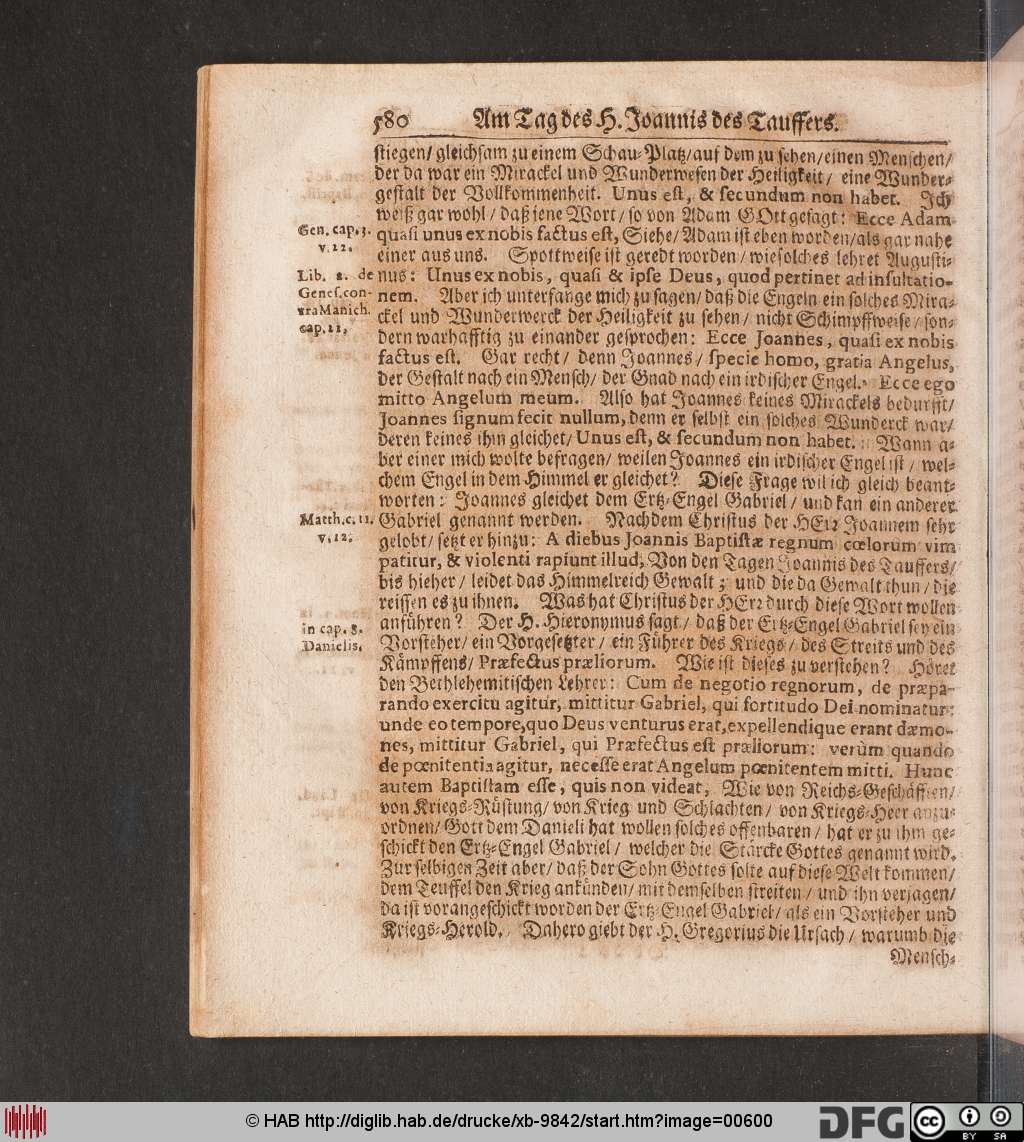 580 Am Tag des H. Joannis des Tauffers.
stiegen/ gleichsam zu einem Schau-Platz/ auf dem zu sehen/ einen Menschen/
der da war ein Mirackel und Wunderwesen der Heiligkeit/ eine Wunder-
gestalt der Vollkommenheit. Unus est, & secundum non habet. Ich
weiß gar wohl/ daß jene Wort/ so von Adam GOtt gesagt: Ecce Adam
Gen. cap. 3.
v. 22.
quasi unus ex nobis factus est, Siehe/ Adam ist eben worden/ als gar nahe
einer aus uns. Spottweise ist geredt worden/ wie solches lehret Augusti-
Lib. 2. de
Genes. con-
tra Manich.
cap. 22,
nus: Unus ex nobis, quasi & ipse Deus, quod pertinet ad insultatio-
nem. Aber ich unterfange mich zu sagen/ daß die Engeln ein solches Mira-
ckel und Wunderwerck der Heiligkeit zu sehen/ nicht Schimpffweise/ son-
dern warhafftig zu einander gesprochen: Ecce Joannes, quasi ex nobis
factus est. Gar recht/ denn Joannes/ specie homo, gratia Angelus,
der Gestalt nach ein Mensch/ der Gnad nach ein irdischer Engel. Ecce ego
mitto Angelum meum. Also hat Joannes keines Mirackels bedurfft/
Joannes signum fecit nullum, denn er selbst ein solches Wunderck war/
deren keines ihm gleichet/ Unus est, & secundum non habet. Wann a-
ber einer mich wolte befragen/ weilen Joannes ein irdischer Engel ist/ wel-
chem Engel in dem Himmel er gleichet? Diese Frage wil ich gleich beant-
worten: Joannes gleichet dem Ertz-Engel Gabriel/ und kan ein anderer
Matth. c. 11.
v. 12.
Gabriel genannt werden. Nachdem Christus der HErr Joannem sehr
gelobt/ setzt er hinzu: A diebus Joannis Baptistæ regnum cœlorum vim
patitur, & violenti rapiunt illud, Von den Tagen Joannis des Tauffers/
bis hieher/ leidet das Himmelreich Gewalt; und die da Gewalt thun/ die
reissen es zu ihnen. Was hat Christus der HErr durch diese Wort wollen
in cap. 8.
Danielis.
anführen? Der H. Hieronymus sagt/ daß der Ertz-Engel Gabriel sey ein
Vorsteher/ ein Vorgesetzter/ ein Führer des Kriegs/ des Streits und des
Kämpffens/ Præfectus præliorum. Wie ist dieses zu verstehen? Höret
den Bethlehemitischen Lehrer: Cum de negotio regnorum, de præpa-
rando exercitu agitur, mittitur Gabriel, qui fortitudo Dei nominatur:
unde eo tempore, quo Deus venturus erat, expellendique erant dæmo-
nes, mittitur Gabriel, qui Præfectus est præliorum: verùm quando
de pœnitentia agitur, necesse erat Angelum pœnitentem mitti. Hunc
autem Baptistam esse, quis non videat, Wie von Reichs-Geschäfften/
von Kriegs-Rüstung/ von Krieg und Schlachten/ von Kriegs-Heer anzu-
ordnen/ Gott dem Danieli hat wollen solches offenbaren/ hat er zu ihm ge-
schickt den Ertz-Engel Gabriel/ welcher die Stärcke Gottes genannt wird.
Zur selbigen Zeit aber/ daß der Sohn Gottes solte auf diese Welt kommen/
dem Teuffel den Krieg ankünden/ mit demselben streiten/ und ihn verjagen/
da ist vorangeschickt worden der Ertz-Engel Gabriel/ als ein Vorsteher und
Kriegs-Herold. Dahero giebt der H. Gregorius die Ursach/ warumb die
Mensch-
© HAB http://diglib.hab.de/drucke/xb-9842/start.htm?image=00600
DFG
cc BY SA